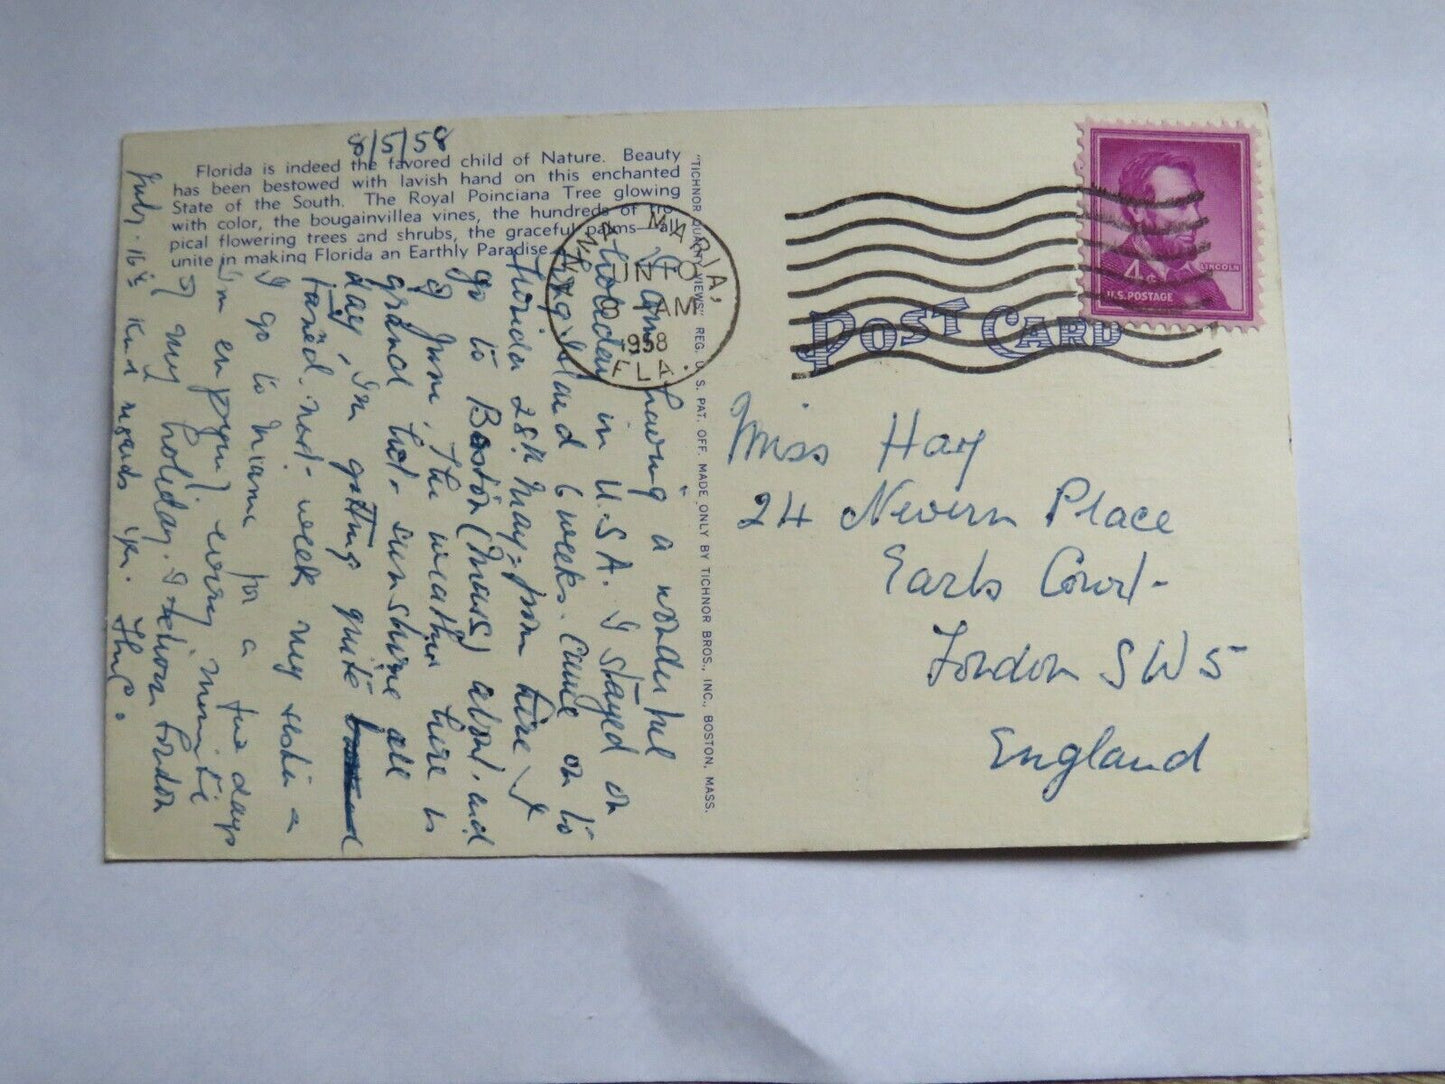 8/5/58
Florida is indeed the favored child of Nature. Beauty
has been bestowed with lavish hand on this enchanted
State of the South. The Royal Poinciana Tree glowing
with color, the bougainvillea vines, the hundreds of tro-
pical flowering trees and shrubs, the graceful palms—all
unite in making Florida an Earthly Paradise.
I am having a wonderful
holiday in U.S.A. I stayed on
Long Island 6 weeks. Came on to
Florida 28th May = from here I
go to Boston (Mass) about end
of June. The weather here is
grand, hot sunshine all
day, I'm getting quite
tanned. next week my sister &
I go to Miami for a few days
I'm enjoying every minute
of my holiday. I return London
July 16th Kind regards
"TICHNOR QUALITY VIEWS" REG. U. S. PAT. OFF. MADE ONLY BY TICHNOR BROS., INC., BOSTON, MASS.
ANNA MARIA,
JUN 10
8 AM
1958
FLA.
4c
LINCOLN
U.S. POSTAGE
POST CARD
Miss Hay
24 Nevern Place
Earls Court
London SW5
England